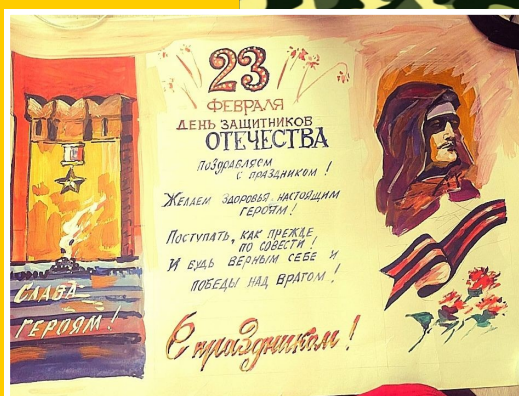 23
ФЕВРАЛЯ
ДЕНЬ ЗАЩИТНИКОВ
ОТЕЧЕСТВА
ПОЗДРАВЛЯЕМ
С ПРАЗДНИКОМ !
ЖЕЛАЕМ ЗДОРОВЬЯ НАСТОЯЩИМ
ГЕРОЯМ !
ПОСТУПАТЬ, КАК ПРЕЖДЕ,
ПО СОВЕСТИ !
И БУДЬ ВЕРНЫМ СЕБЕ И
ПОБЕДЫ НАД ВРАГОМ !
С праздником !
СЛАВА
ГЕРОЯМ !